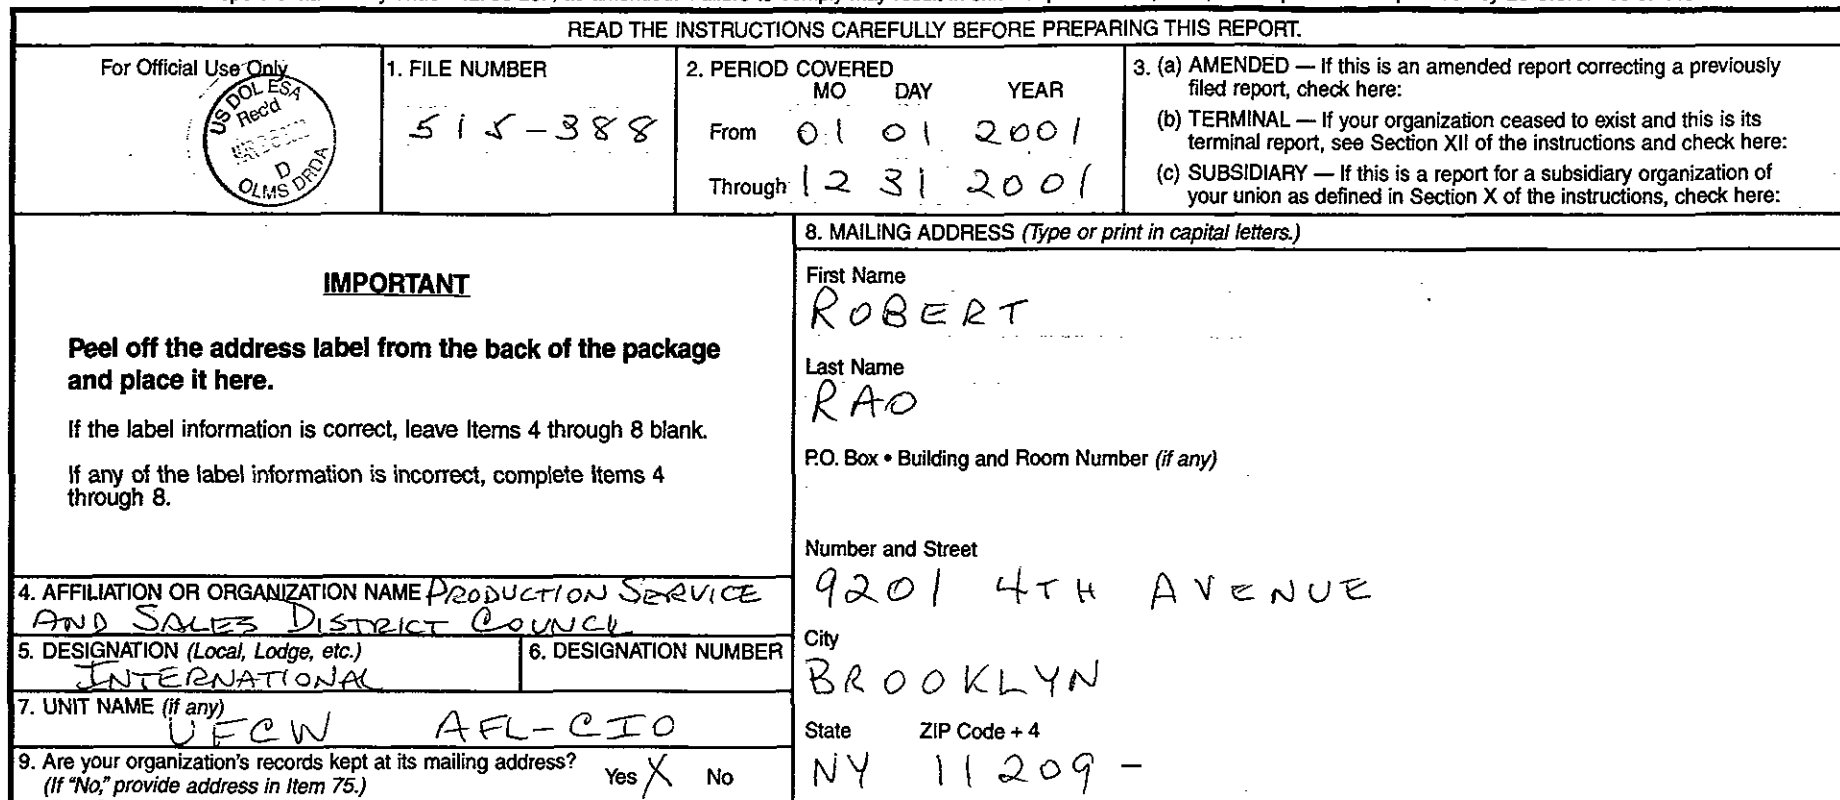 READ THE INSTRUCTIONS CAREFULLY BEFORE PREPARING THIS REPORT.
For Official Use Only
US DOL ESA
Rec'd
D
OLMS DRDA
1. FILE NUMBER
515-388
2. PERIOD COVERED
MO DAY YEAR
From 01 01 2001
Through 12 31 2001
3. (a) AMENDED — If this is an amended report correcting a previously
filed report, check here:
(b) TERMINAL — If your organization ceased to exist and this is its
terminal report, see Section XII of the instructions and check here:
(c) SUBSIDIARY — If this is a report for a subsidiary organization of
your union as defined in Section X of the instructions, check here:
IMPORTANT
Peel off the address label from the back of the package
and place it here.
If the label information is correct, leave Items 4 through 8 blank.
If any of the label information is incorrect, complete Items 4
through 8.
4. AFFILIATION OR ORGANIZATION NAME PRODUCTION SERVICE
AND SALES DISTRICT COUNCIL
5. DESIGNATION (Local, Lodge, etc.)
INTERNATIONAL
6. DESIGNATION NUMBER
7. UNIT NAME (if any)
UFCW AFL-CIO
9. Are your organization's records kept at its mailing address?
(If "No," provide address in Item 75.)
Yes X No
8. MAILING ADDRESS (Type or print in capital letters.)
First Name
ROBERT
Last Name
RAO
P.O. Box • Building and Room Number (if any)
Number and Street
9201 4TH AVENUE
City
BROOKLYN
State ZIP Code + 4
NY 11209 -